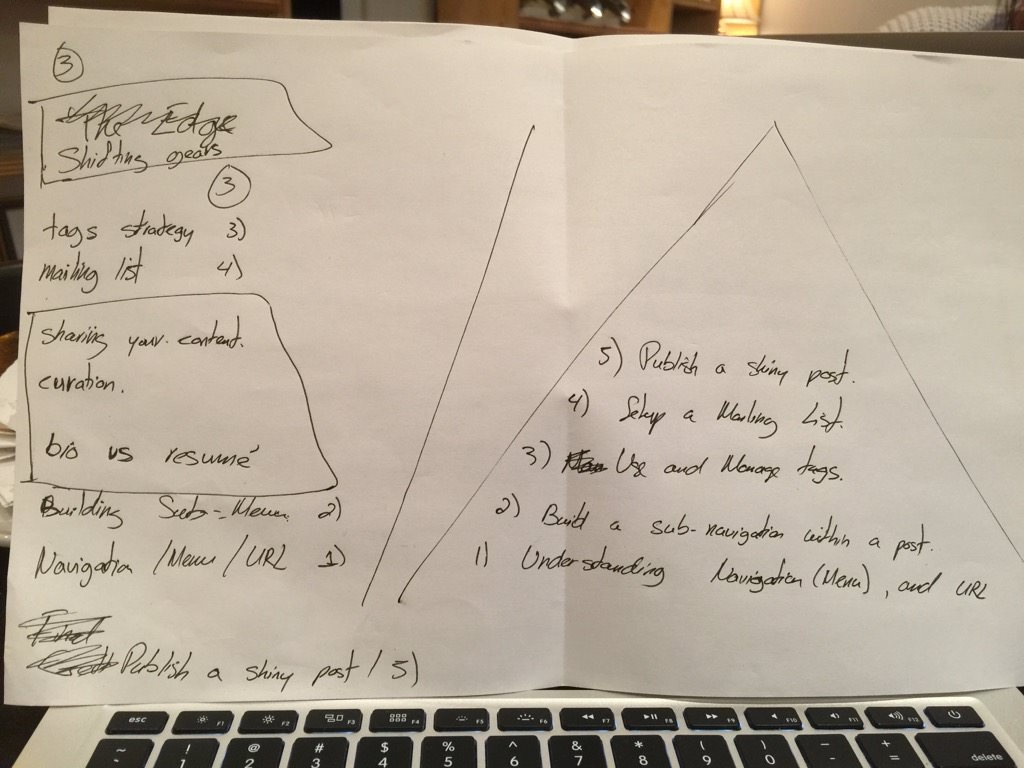 3
The Edge
Shifting gears
3
tags strategy 3)
mailing list 4)
sharing your content.
curation.
bio vs resumé
Building Sub-Menu 2)
Navigation /Menu / URL 1)
Publish a shiny post / 5)
5) Publish a shiny post.
4) Setup a Mailing List.
3) Use and Manage tags.
2) Build a sub-navigation within a post.
1) Understanding Navigation (Menu), and URL
esc F1 F2 F3 F4 F5 F6 F7 F8 F9 F10 F11 F12
~ ! @ # $ % ^ & * ( ) _ + delete
1 2 3 4 5 6 7 8 9 0 - =